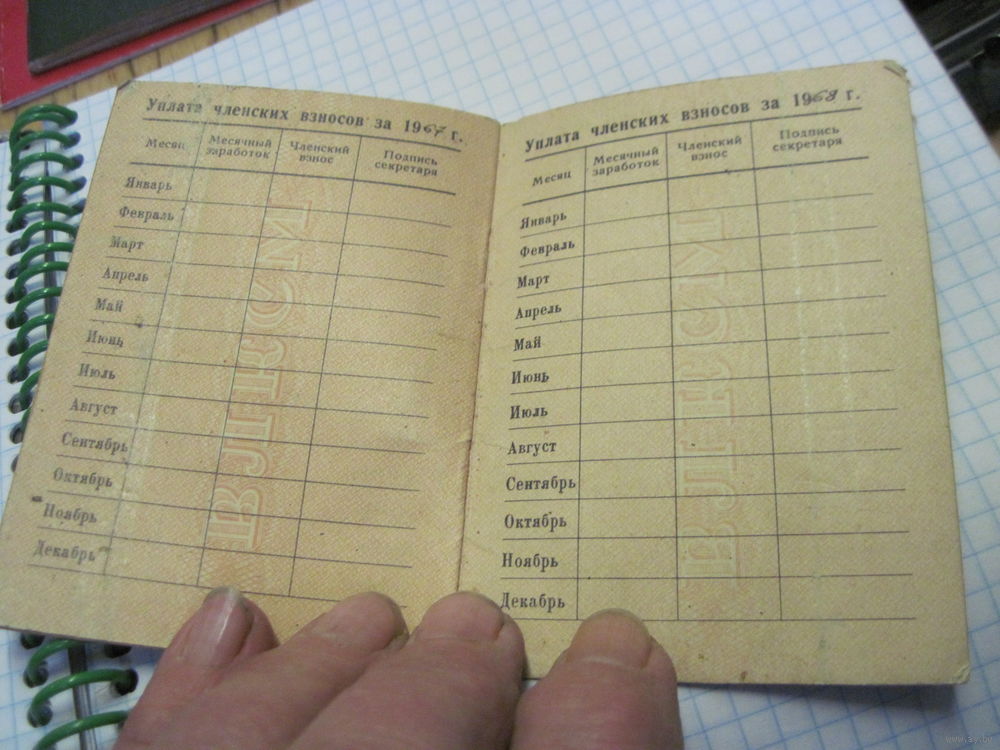 Уплата членских взносов за 1967 г.
Месяц Месячный заработок Членский взнос Подпись секретаря
Январь
Февраль
Март
Апрель
Май
Июнь
Июль
Август
Сентябрь
Октябрь
Ноябрь
Декабрь
ВЛКСМ
Уплата членских взносов за 1968 г.
Месяц Месячный заработок Членский взнос Подпись секретаря
Январь
Февраль
Март
Апрель
Май
Июнь
Июль
Август
Сентябрь
Октябрь
Ноябрь
Декабрь
ВЛКСМ
www.ay.by